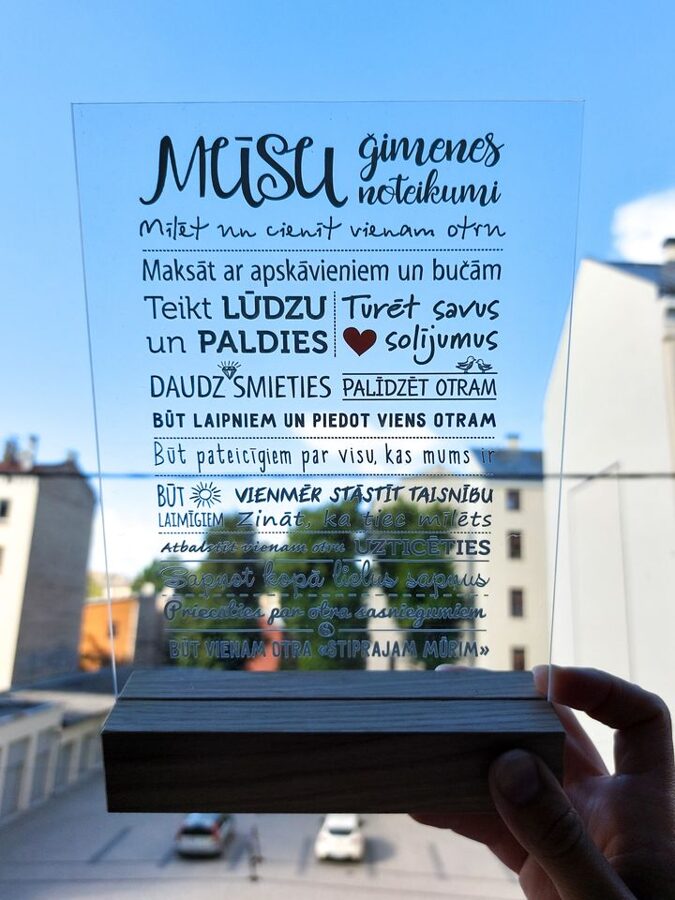 MŪSU ģimenes noteikumi
Mīlēt un cienīt vienam otru
Maksāt ar apskāvieniem un bučām
Teikt LŪDZU
un PALDIES
Turēt savus
solījumus
DAUDZ SMIETIES
PALĪDZĒT OTRAM
BŪT LAIPNIEM UN PIEDOT VIENS OTRAM
Būt pateicīgiem par visu, kas mums ir
BŪT
LAIMĪGIEM
VIENMĒR STĀSTĪT TAISNĪBU
Zināt, ka tiec mīlēts
Atbalstīt vienam otru UZTICĒTIES
Sapņot kopā lielus sapņus
Priecāties par otra sasniegumiem
BŪT VIENAM OTRA «STIPRAJAM MŪRIM»